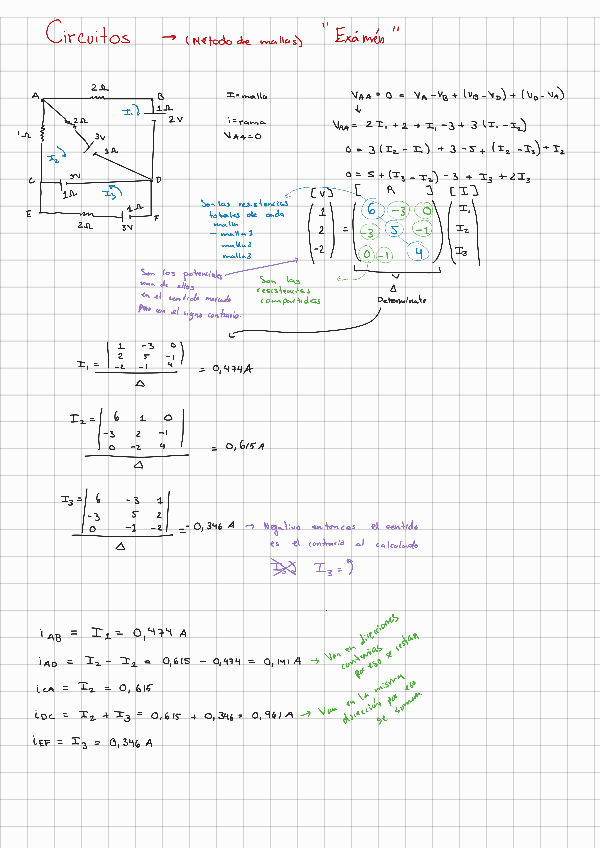 Circuitos → (Método de mallas) "Exámen"
2Ω
A B
I₁ 1Ω
2V
2Ω
1Ω
3V
I₂ 3Ω
C 9V D
1Ω I₃
E 1Ω F
2Ω 3V
I = malla
i = rama
V_AA = 0
V_AA = 0 = V_A - V_B + (V_B - V_D) + (V_D - V_A)
↓
V_AA = 2I₁ + 2 + I₁ - 3 + 3(I₁ - I₂)
0 = 3(I₂ - I₁) + 3 - 5 + (I₂ - I₃) + I₂
0 = 5 + (I₃ - I₂) - 3 + I₃ + 2I₃
[V] [ A ] [I]
1 6 -3 0 I₁
2 = -3 5 -1 I₂
-2 0 -1 4 I₃
Δ
Determinate
Son las resistencias
totales de cada
malla
- malla 1
malla 2
malla 3
Son los potenciales
una de ellos
en el sentido marcado
pero con el signo contrario.
Son las
resistencias
compartidas
I₁ = | 1 -3 0 |
| 2 5 -1 | = 0,474A
| -2 -1 4 |
Δ
I₂ = | 6 1 0 |
| -3 2 -1 | = 0,615 A
| 0 -2 4 |
Δ
I₃ = | 6 -3 1 |
| -3 5 2 | = -0,346 A → Negativo entonces el sentido
| 0 -1 -2 | es el contrario al calculado
Δ
I₃ =
i_AB = I₁ = 0,474 A
i_AD = I₂ - I₂ = 0,615 - 0,474 = 0,141 A → Van en direciones
contrarias
por eso se restan
i_CA = I₂ = 0,615
i_DC = I₂ + I₃ = 0,615 + 0,346 = 0,961 A → Van en la misma
dirección por eso
se suman
i_EF = I₃ = 0,346 A